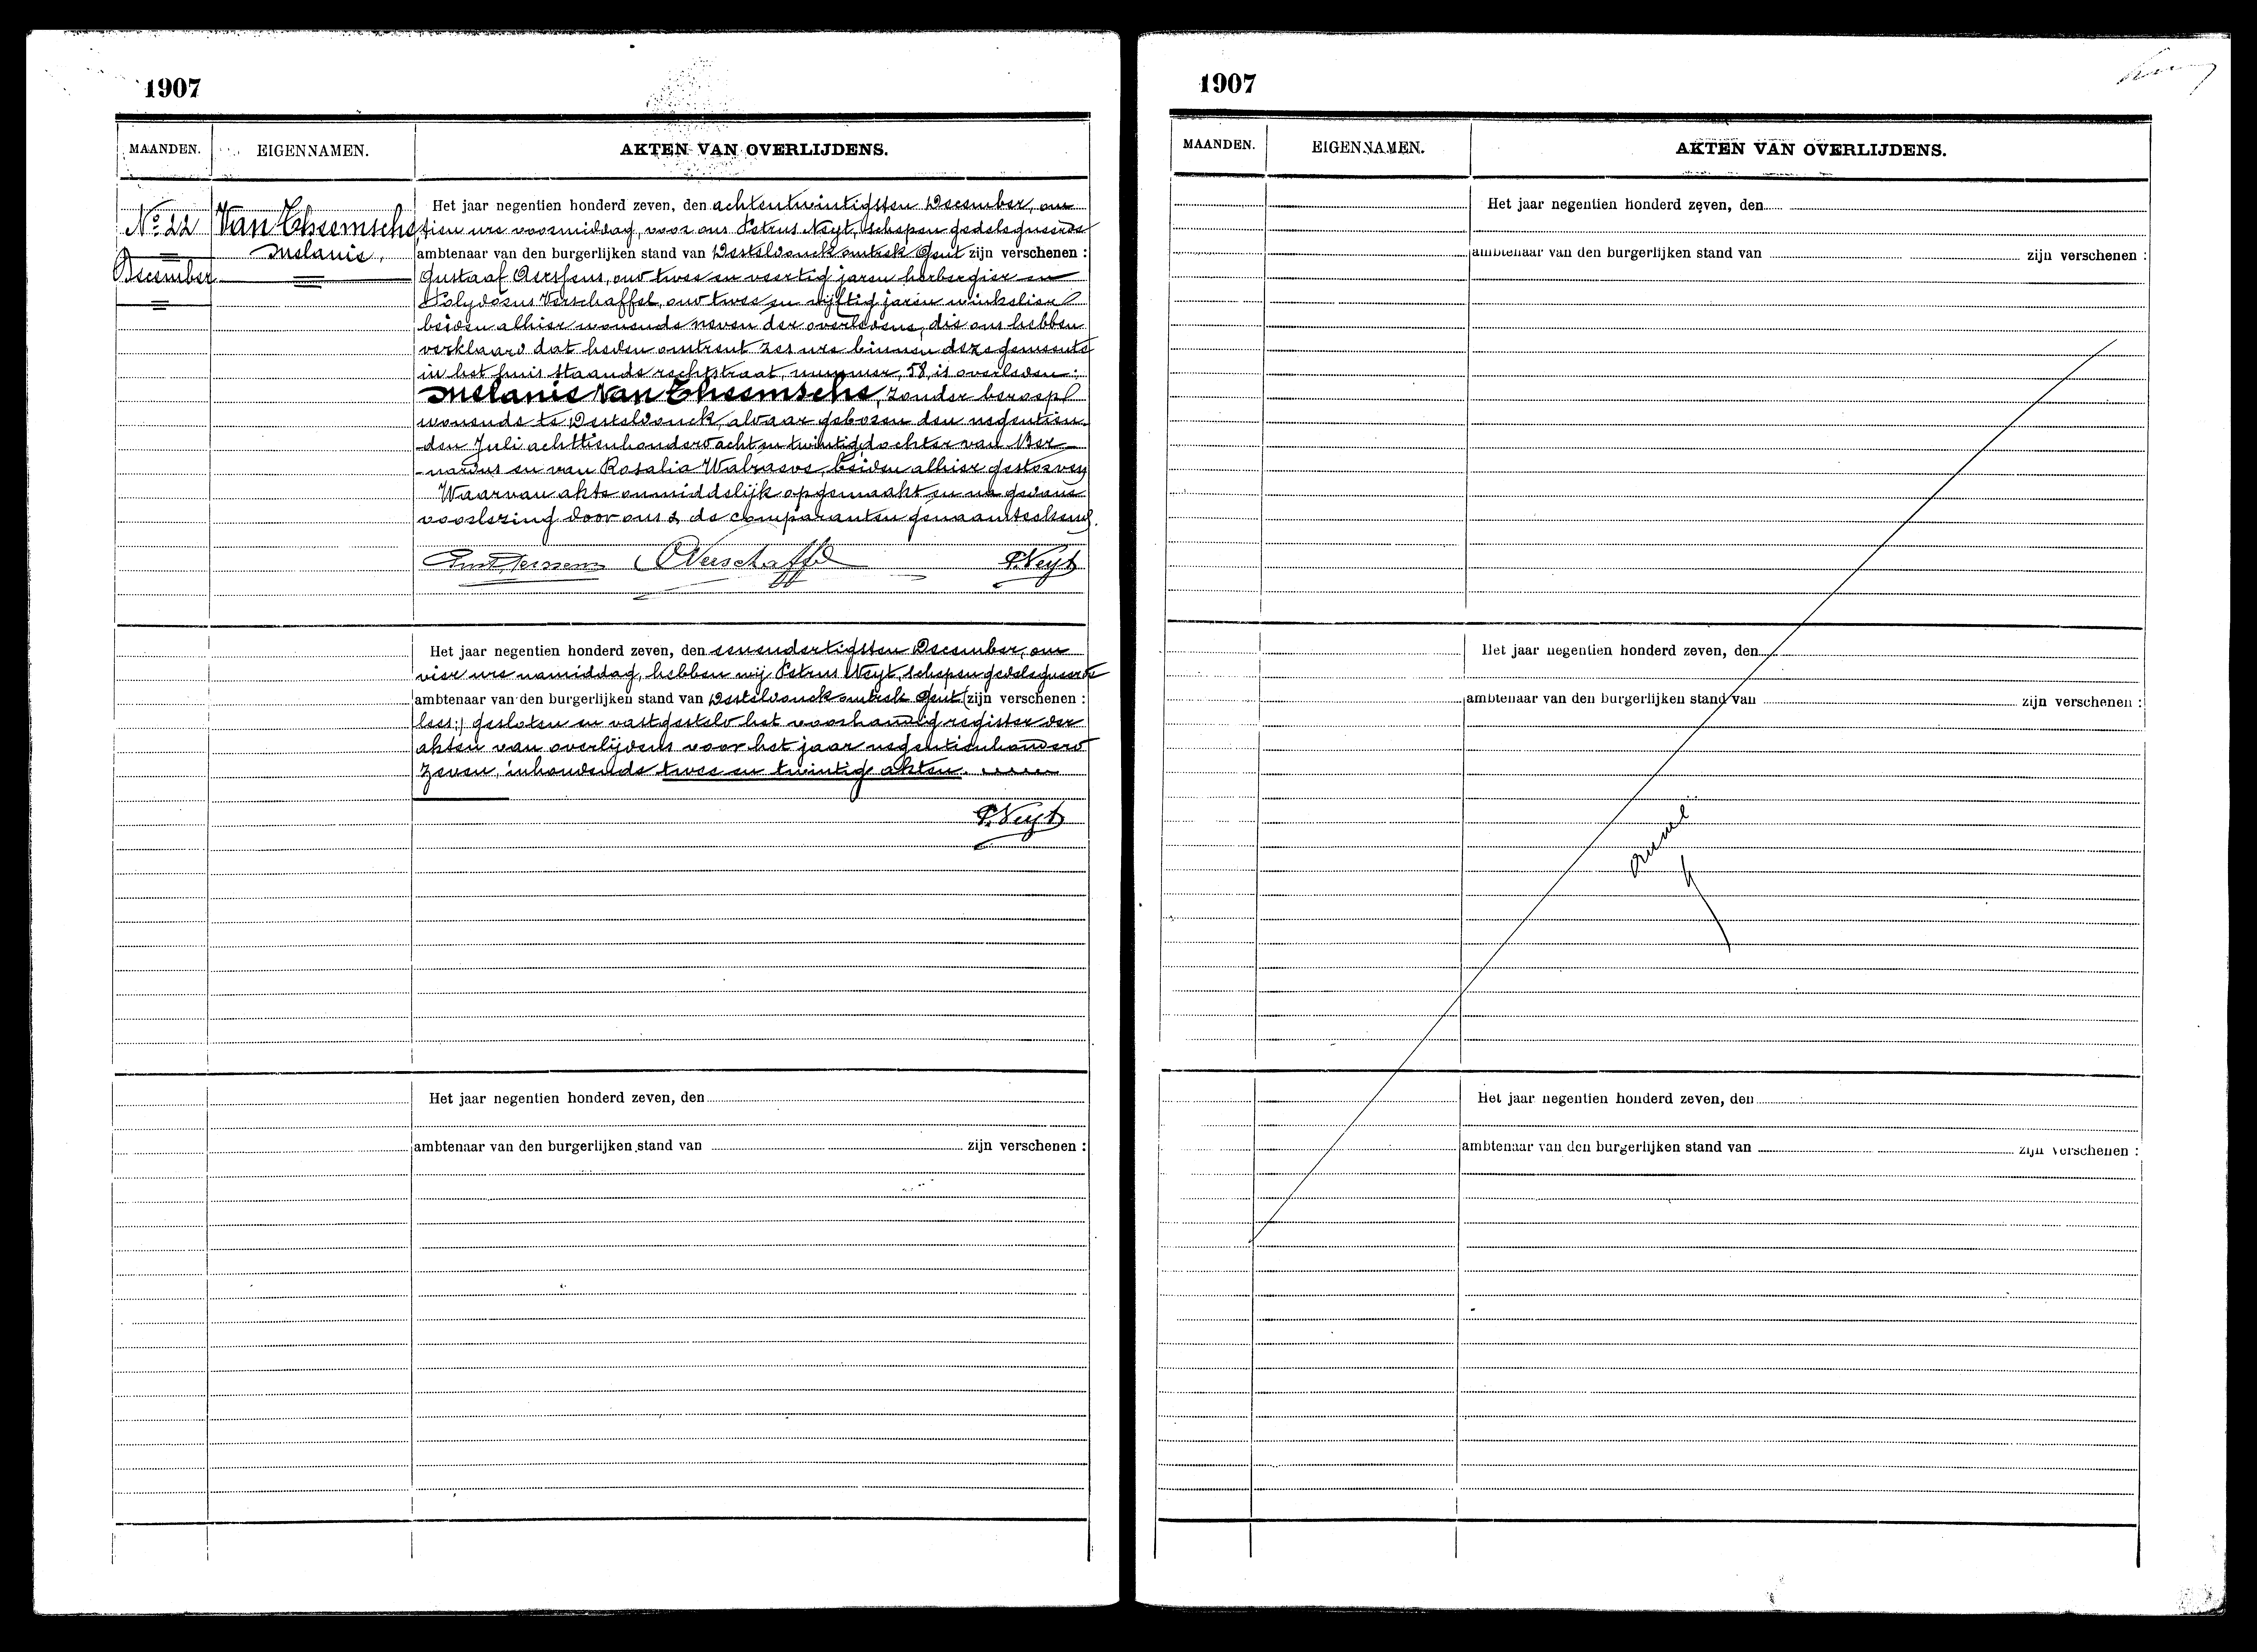 1907
MAANDEN.
EIGENNAMEN.
AKTEN VAN OVERLIJDENS.
No 22
December
Van Theemsche
Melanie,
Het jaar negentien honderd zeven, den achtentwintigsten December, om
tien ure voormiddag, voor ons Petrus Neyt, schepen gedelegueerde
ambtenaar van den burgerlijken stand van Desteldonck omtrek Gent zijn verschenen :
Gustaaf Aerssens, oud twee en veertig jaren herbergier en
Polydorus Verschaffel, oud twee en vijftig jaren winkelier
beiden alhier wonende neven der overledene, die ons hebben
verklaard dat heden omtrent zes ure binnen deze gemeente
in het huis staande rechtstraat, nummer, 58, is overleden:
Melanie Van Theemsche, zonder beroep
wonende te Desteldonck, aldaar geboren den negentien-
den Juli achttienhonderd acht en twintig, dochter van Ber-
nardus en van Rosalia Walraeve, beiden alhier gestorven
Waarvan akte onmiddelijk opgemaakt en na gedane
voorlezing door ons & de comparanten genaamteekend.
Verschaffel
P. Neyt
Het jaar negentien honderd zeven, den eenendertigsten December, om
vier ure namiddag, hebben wij Petrus Neyt, schepen gedelegueerde
ambtenaar van den burgerlijken stand van Desteldonck omtrek Gent (zijn verschenen :
lees:) gesloten en vastgesteld het voorhandig register der
akten van overlijdens voor het jaar negentienhonderd
zeven, inhoudende twee en twintig akten.
P. Neyt
Het jaar negentien honderd zeven, den
ambtenaar van den burgerlijken stand van zijn verschenen :
1907
MAANDEN.
EIGENNAMEN.
AKTEN VAN OVERLIJDENS.
Het jaar negentien honderd zeven, den
ambtenaar van den burgerlijken stand van zijn verschenen :
Het jaar negentien honderd zeven, den
ambtenaar van den burgerlijken stand van zijn verschenen :
Het jaar negentien honderd zeven, den
ambtenaar van den burgerlijken stand van zijn verschenen :